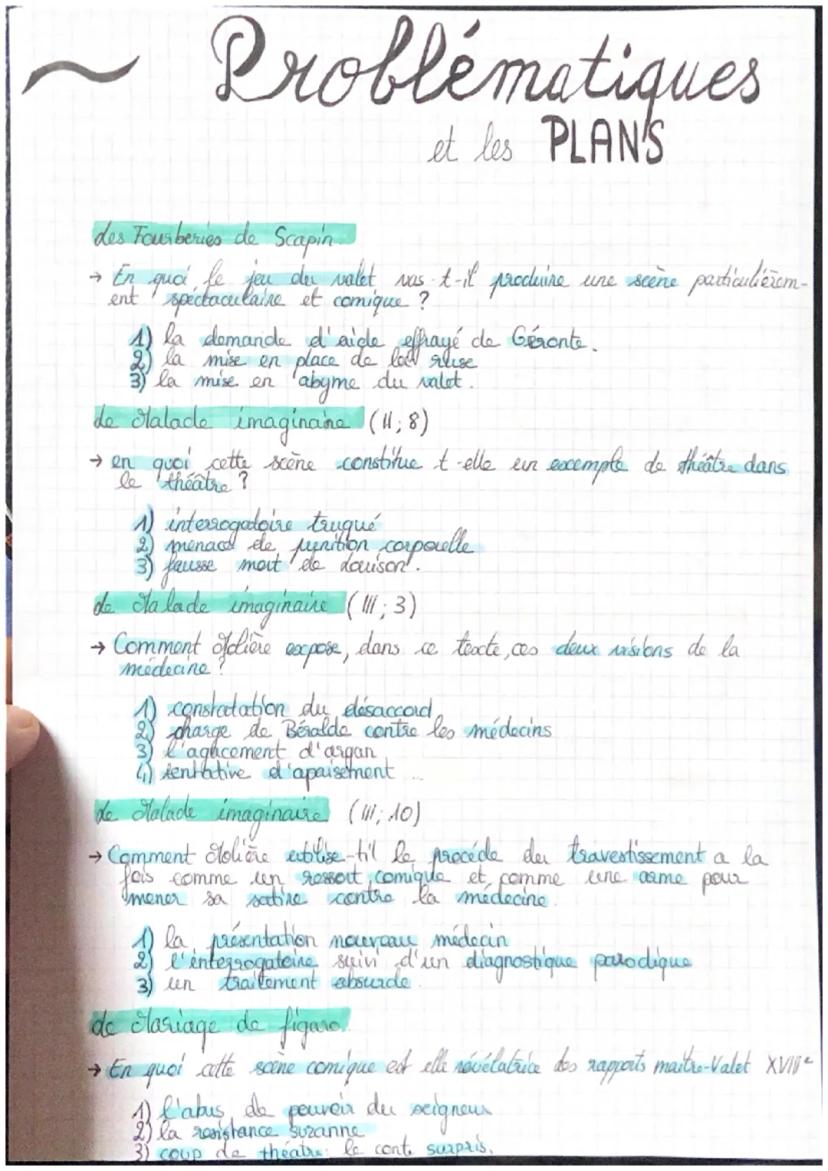 Problématiques
et les PLANS
Les Fourberies de Scapin
→ En quoi, le jeu du valet vas-t-il produire une scène particulièrem-
ent spectaculaire et comique ?
1) la demande d'aide effrayé de Géronte.
2) la mise en place de la ruse
3) la mise en abyme du valet.
Le Malade imaginaire (II; 8)
→ en quoi cette scène constitue t-elle un exemple de théâtre dans
le théâtre ?
1) interrogatoire truqué
2) menace de punition corporelle
3) fausse mort de Louison.
Le Malade imaginaire (III; 3)
→ Comment Molière expose, dans ce texte, ces deux visions de la
médecine ?
1) constatation du désaccord
2) charge de Béralde contre les médecins
3) l'agacement d'argan
4) tentative d'apaisement ...
Le Malade imaginaire (III; 10)
→ Comment Molière utilise-til le procéde du travestissement a la
fois comme un ressort comique et comme une arme pour
mener sa satire contre la médecine.
1) la présentation nouveau médecin
2) l'interrogatoire suivi d'un diagnostique parodique
3) un traitement absurde.
Le Mariage de figaro.
→ En quoi cette scène comique est elle révélatrice des rapports maitre-Valet XVIIIe
1) l'abus de pouvoir du seigneur
2) la resistance suzanne
3) coup de théatre: le conte surpris.